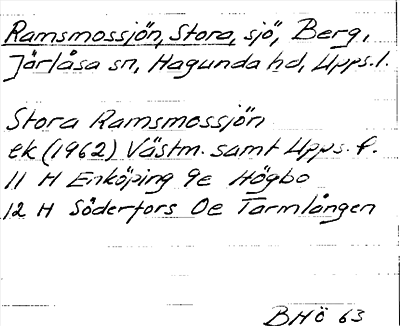 Ramsmossjön, Stora, sjö, Berg,
Järlåsa sn, Hagunda hd, Upps. l.
Stora Ramsmossjön
ek (1962) Västm. samt Upps. f.
11 H Enköping 9e Högbo
12 H Söderfors 0e Tarmlången
BHö 63